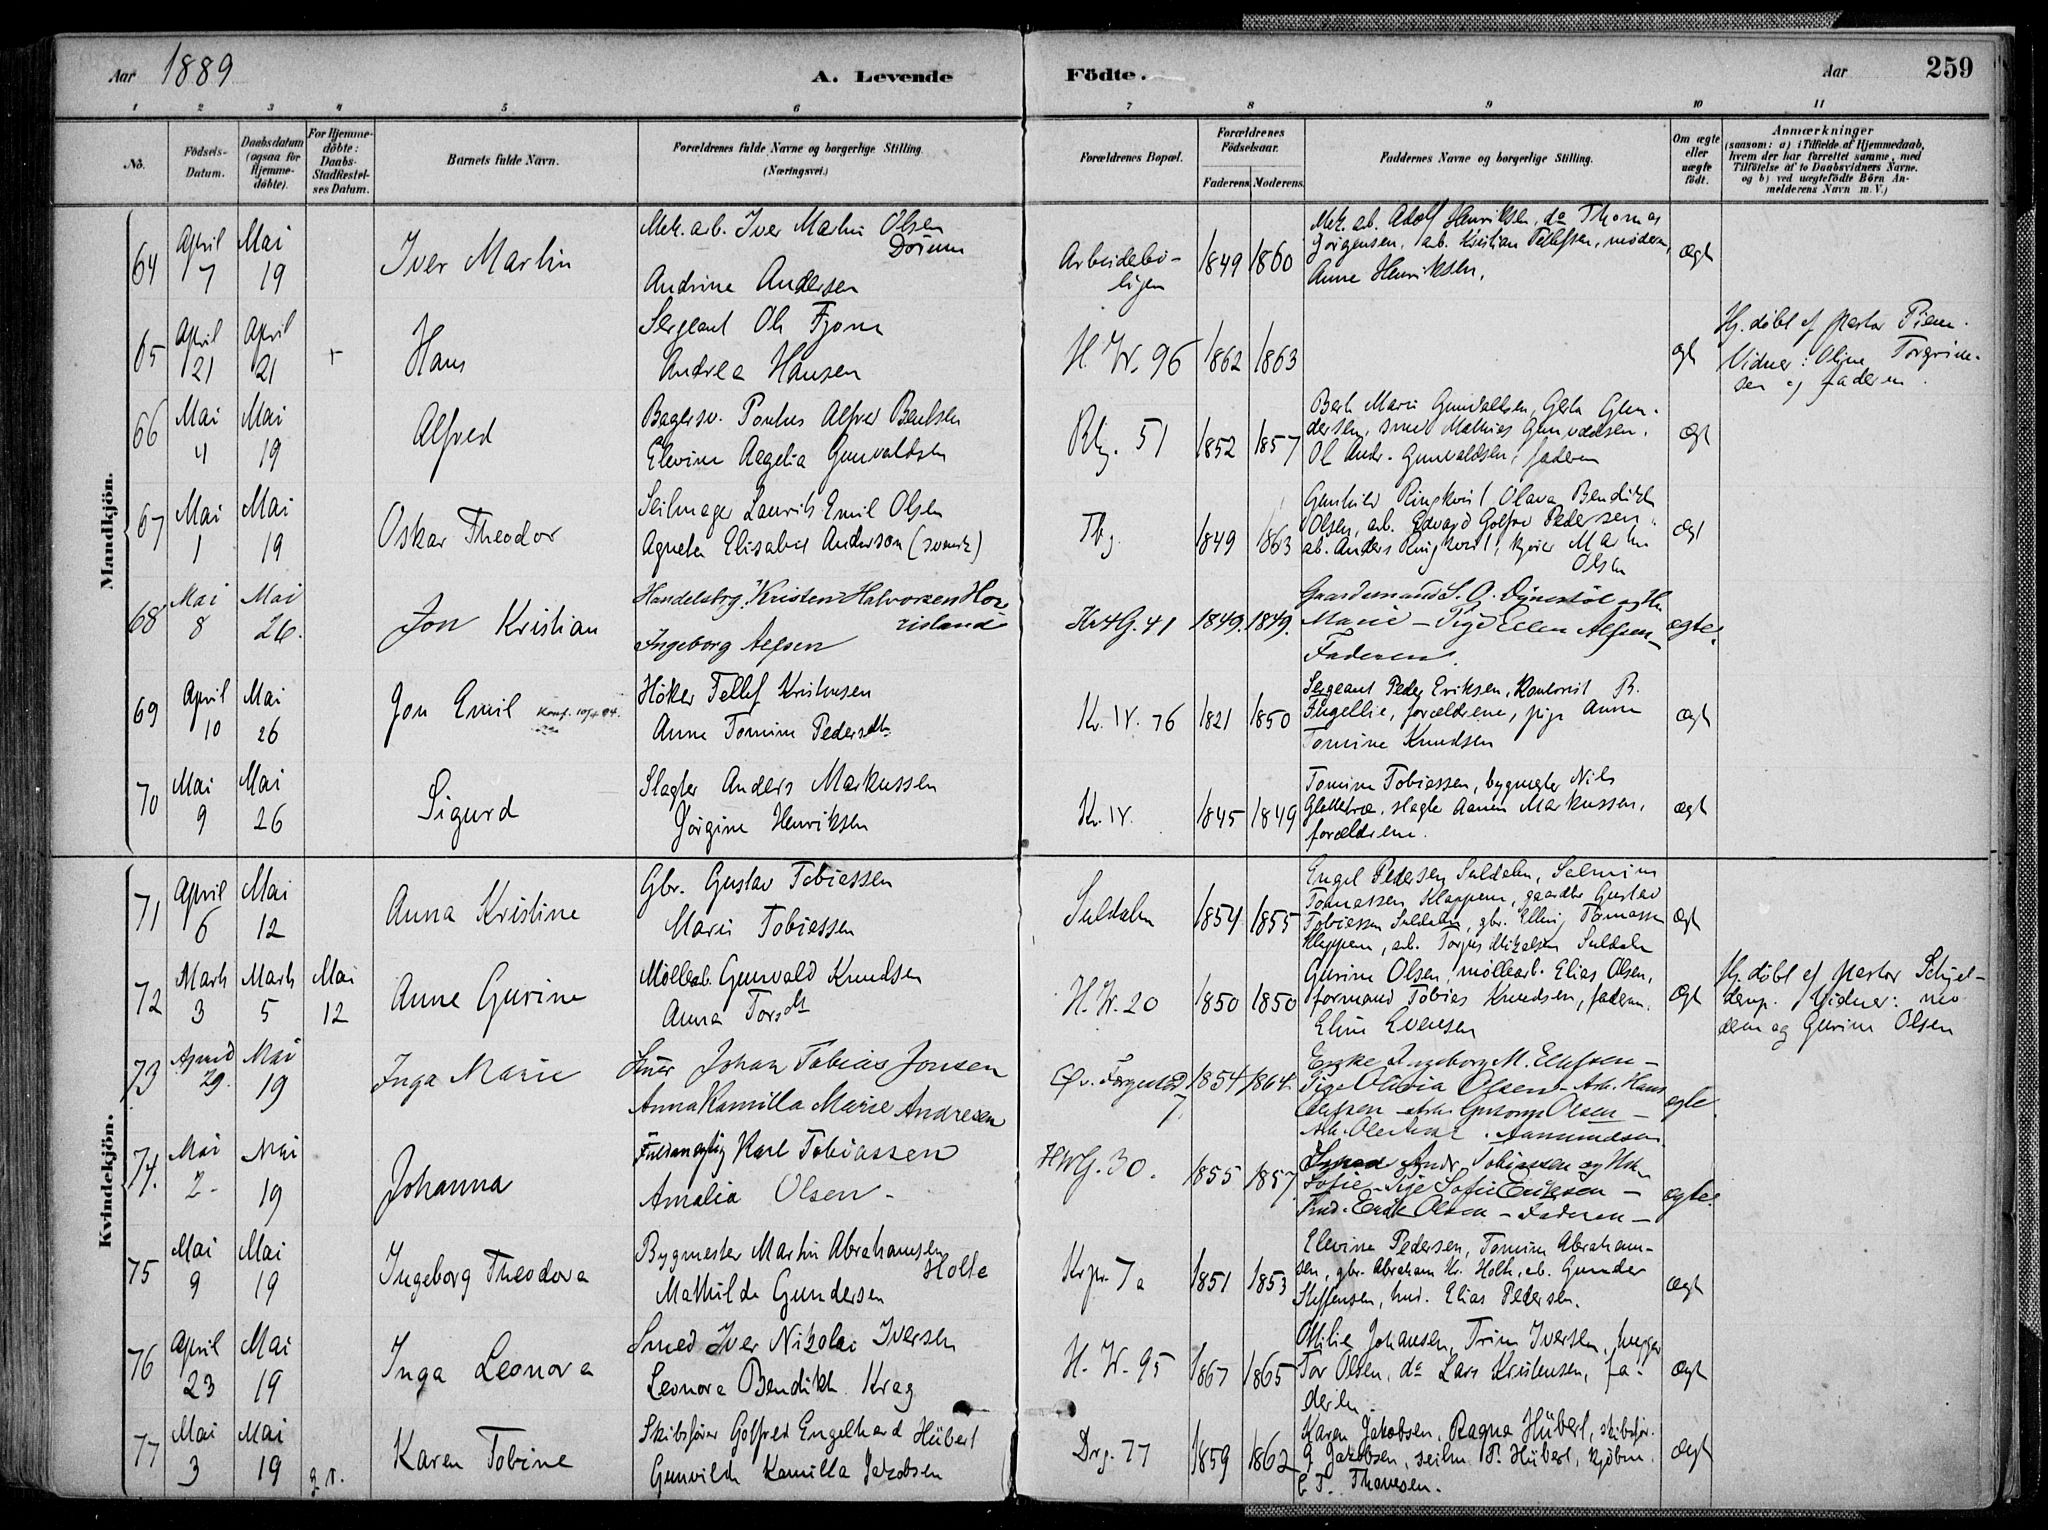 Aar 1889
A. Levende
Födte.
Aar
259
1 2 3 4 5 6 7 8 9 10 11
No.
Födsels-Datum.
Daabsdatum (ogsaa for Hjemme-döbte).
For Hjemme-döbte: Daabs-Stadfestel-ses Datum.
Barnets fulde Navn.
Forældrenes fulde Navne og borgerlige Stilling. (Næringsvei.)
Forældrenes Bopæl.
Forældrenes Födselsaar.
Faderens. Moderens.
Faddernes Navne og borgerlige Stilling.
Om ægte eller uægte födt.
Anmærkninger
(saasom: a) i Tilfælde af Hjemmedaab,
hvem der har forrettet samme, med
Tilföielse af to Daabsvidners Navne.
og b) ved uægtefödte Börn An-
melderens Navn m. V.)
Mandkjön.
64 April 7 Mai 19 Iver Martin
Mek. arb. Iver Martin Olsen
Andrine Andersen
Arbeidebo-
ligen
1849 1860
Mek. arb. Adolf Henriksen, do Thomas
Jörgensen, arb. Kristian Tellefsen, moderen,
Anne Henriksen.
ægt
65 April 21 April 21 Hans
Sergeant Ole Fjone
Andrea Hansen
H. W. 96 1862 1863 egt
Hj. döbt af Pastor
Vidner: Oline Torgrim-
sen og faderen.
66 Mai 4 Mai 19 Alfred
Bagersv. Pontus Alfred Bentsen
Elevine Aagelia Gunvaldsen
51 1852 1857
Berte Marie Gunvaldsen,
dersen, smed Mathias Gunvaldsen,
Ole Andr. Gunvaldsen, faderen
ægt
67 Mai 1 Mai 19 Oskar Theodor
Seilmager Laurits Emil Olsen
Agneta Elisabet Anderson (svensk)
Tbg. 1849 1863
Gunhild Ringkvist, Olava Bendikte
Olsen, arb. Edvard Golfred Pedersen,
arb. Anders Ringkvist, Martin
Olsen
ægt
68 Mai 8 Mai 26. Jon Kristian
Handelsbrg. Kristen Halvorsen Hor-
risland
Ingeborg Alfsen
41 1849. 1849.
Gaardmand S. O. Dynestöl og Hu.
Marie - Pige Ellen Alfsen -
Faderen.
ægte.
69 April 10 Mai 26 Jon Emil
Höker Tellef Kristensen
Anne Tomine Pedersdtr
Kr. W. 76 1821 1850
Sergeant Peder Eriksen, Kontorist B.
Fugellie, forældrene, pige Anne
Tomine Knudsen
ægt
70 Mai 9 Mai 26 Sigurd
Slagter Anders Markussen
Jörgine Henriksen
Kr. W. 1845 1849
Tomine Tobiassen, bygmester Nils
slagter Aanen Markussen,
forældrene.
ægt
Kvindekjön.
71 April 6 Mai 12 Anna Kristine
Gbr. Gustav Tobiassen
Marie Tobiassen
Suldalen 1854 1855
Engel Pedersen Suldalen, Salmine
Tomassen Kleppene, gaardbr Gustav
Tobiassen Suldalen, gbr. Elling Tomassen
Kleppene, arb. Torjus Mikalsen Suldalen
ægt
72 Marts 3 Marts 5 Mai 12 Anne Gurine
Möllearb. Gunvald Knudsen
Anna Torsdtr
H. W. 20 1850 1850
Gurine Olsen, möllearb. Elias Olsen,
formand Tobias Knudsen, faderen.
Eline Evensen
ægt
Hj. döbt af Pastor Schjel-
derup. Vidner: mo-
deren og Gurine Olsen
73 April 29. Mai 19 Inga Marie
Johan Tobias Jonsen
Anna Kamilla Marie Andresen
7. 1854 1864.
Enke Ingeborg M. Ellefsen -
Pige Olavia Olsen - Arb. Hans
Ellefsen - Arb. Olsen -
Aamundsen.
ægte.
74. Mai 2. Mai 19 Johanna
Fuldmægtig Karl Tobiassen
Amalia Olsen -
HWG. 30. 1855 1857.
Andr. Tobiassen og Hu.
Sofie - Pige Sofie Eriksen -
Erik Olsen - Faderen -
ægte.
75 Mai 9 Mai 19 Ingeborg Theodora
Bygmester Martin Abrahamsen
Holte
Mathilde Gundersen
7a 1851 1853
Elevine Pedersen, Tomine Abraham-
sen, gbr. Abraham Kr. Holte, arb. Gunder
Steffensen, tmd. Elias Pedersen.
ægt
76 April 23 Mai 19 Inga Leonora
Smed Iver Nikolai Iversen
Leonora Bendikte Krag
H. W. 95 1867 1865
Otilie Johansen, Trine Iversen,
Tor Olsen, do Lars Kristensen, fa-
deren
ægt
77 Mai 3 Mai 19 Karen Tobine
Skibsförer Golfred Engelhard Hübert
Gunvilde Kamilla Jakobsen
Drg. 77 1859 1862
Karen Jakobsen, Ragna Hübert, skibsför.
G Jakobsen, seilm. P. Hübert, kjöbm.
E T. Thorvesen.
ægt